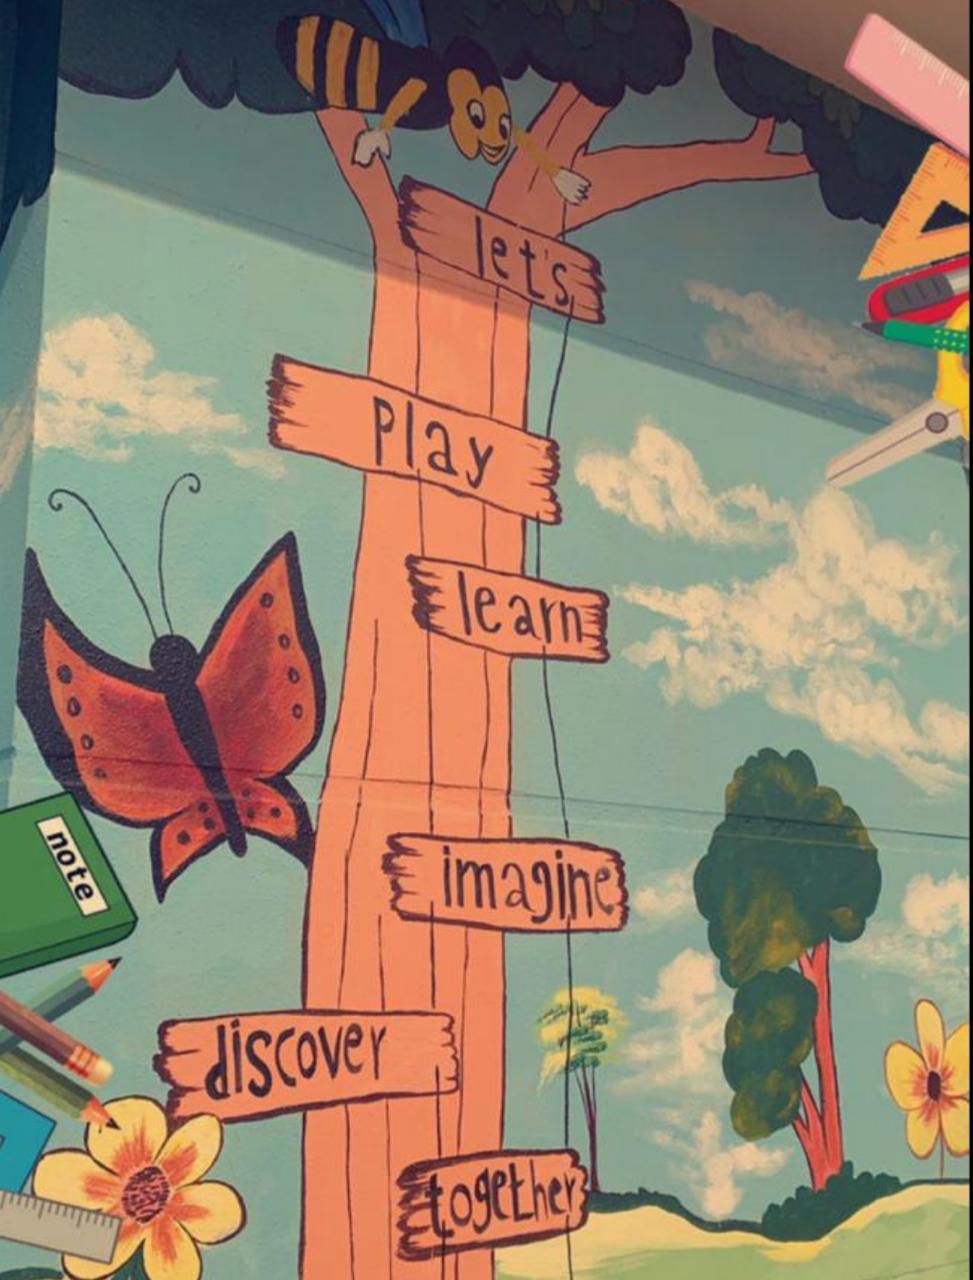 let's
play
learn
imagine
discover
together
note